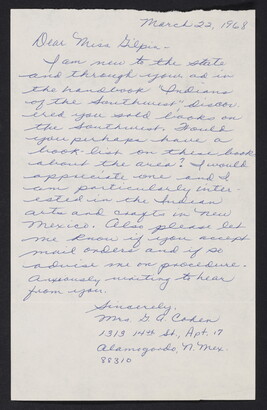 March 22, 1968
Dear Miss Gilpin -
I am new to the state
and through your ad in
the handbook "Indians
of the Southwest" discov-
ered you sold books on
the Southwest. Would
you perhaps have a
book list on these books
about the area? I would
appreciate one and I
am particularly inter-
ested in the Indian
arts and crafts in New
Mexico. Also please let
me know if you accept
mail orders and if so
advise me on procedure.
Anxiously waiting to hear
from you.
Sincerely,
Mrs G. A. Cohen
1313 14th St., Apt. 17
Alamogordo, N. Mex.
88310